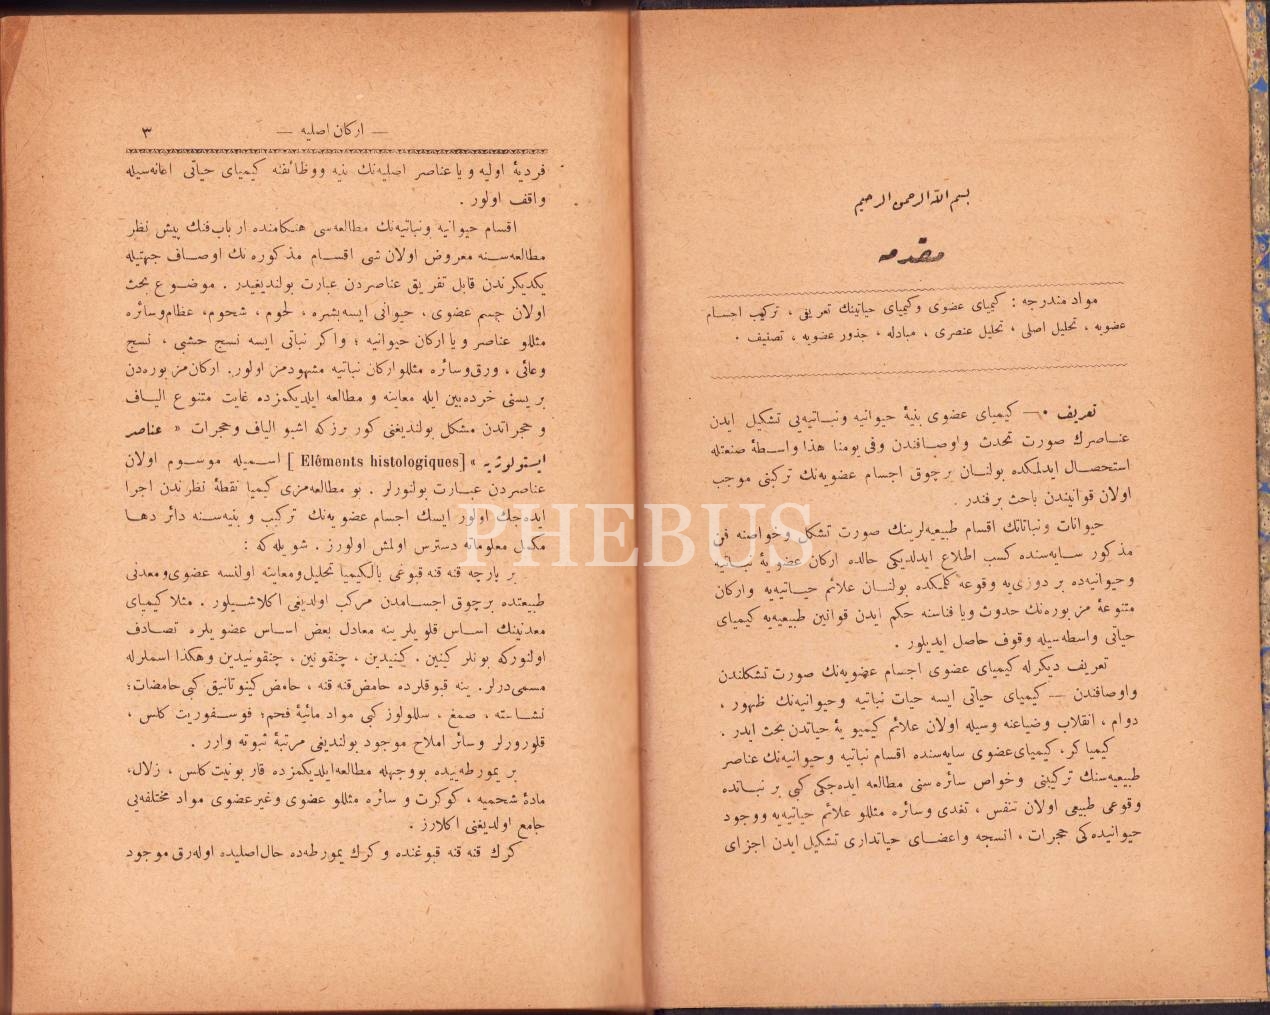 بسم الله الرحمن الرحيم
مقدمه
مواد مندرجه : كيمياى عضوى وكيمياى حياتينك تعريفى ، تركيب اجسام
عضويه ، تحليل اصلى ، تحليل عنصرى ، مبادله ، جذور عضويه ، تصنيف ٠
تعريف ٠— كيمياى عضوى بنيهٔ حيوانيه ونباتيه‌يى تشكيل ايدن
عناصرك صورت تحدث واوصافندن وفى يومنا هذا واسطهٔ صنعتله
استحصال ايدلمكده بولنان برچوق اجسام عضويه‌نك تركبنى موجب
اولان قوانيندن باحث بر فندر .
حيوانات ونباتاتك اقسام طبيعيه‌لرينك صورت تشكل وخواصنه فن
مذكور سايه‌سنده كسب اطلاع ايدلديكى حالده اركان عضويهٔ نباتيه
وحيوانيه‌ده بر دوزى‌يه وقوعه كلمكده بولنان علائم حياتيه‌يه واركان
متنوعهٔ مزبوره‌نك حدوث ويا فناسنه حكم ايدن قوانين طبيعيه‌يه كيمياى
حياتى واسطه‌سيله وقوف حاصل ايديلور .
تعريف ديكرله كيمياى عضوى اجسام عضويه‌نك صورت تشكلندن
واوصافندن — كيمياى حياتى ايسه حيات نباتيه وحيوانيه‌نك ظهور ،
دوام ، انقلاب وضياعنه وسيله اولان علائم كيميويهٔ حياتدن بحث ايدر .
كيمياكر ، كيمياى عضوى سايه‌سنده اقسام نباتيه وحيوانيه‌نك عناصر
طبيعيه‌سنك تركيبنى وخواص سائره‌سنى مطالعه ايده‌جكى كبى بر نباتده
وقوعى طبيعى اولان تنفس ، تغدى وسائره مثللو علائم حياتيه‌يه ووجود
حيوانيده‌كى حجرات ، انسجه واعضاى حياتدارى تشكيل ايدن اجزاى
— اركان اصليه — ٣
فرديهٔ اوليه ويا عناصر اصليه‌نك بنيه ووظائفنه كيمياى حياتى اعانه‌سيله
واقف اولور .
اقسام حيوانيه ونباتيه‌نك مطالعه‌سى هنكامنده ارباب فنك پيش نظر
مطالعه‌سنه معروض اولان شى اقسام مذكوره‌نك اوصاف جهتيله
يكديكرندن قابل تفريق عناصردن عبارت بولنديغيدر . موضوع بحث
اولان جسم عضوى ، حيوانى ايسه بشره ، لحوم ، شحوم ، عظام وسائره
مثللو عناصر ويا اركان حيوانيه ؛ واكر نباتى ايسه نسج خشبى ، نسج
وعائى ، ورق وسائره مثللو اركان نباتيه مشهودمز اولور. اركان مزبوره‌دن
بريسنى خرده‌بين ايله معاينه و مطالعه ايلديكمزده غايت متنوع الياف
و حجراتدن مشكل بولنديغنى كورر زكه اشبو الياف وحجرات « عناصر
ايستولوژيه » [Eléments histologiques] اسميله موسوم اولان
عناصردن عبارت بولنورلر . بو مطالعه‌مزى كيميا نقطهٔ نظرندن اجرا
ايده‌جك اولور ايسك اجسام عضويه‌نك تركيب و بنيه‌سنه دائر دها
مكمل معلوماته دسترس اولمش اولورز . شويله‌كه :
بر پارچه قنه قنه قبوغى بالكيميا تحليل ومعاينه اولنسه عضوى ومعدنى
طبيعتده برچوق اجسامدن مركب اولديغى اكلاشيلور . مثلا كيمياى
معدنينك اساس قلويلرينه معادل بعض اساس عضويلره تصادف
اولنوركه بونلر كينين ، كينيدين ، چنقونين ، چنقونيدين وهكذا اسملرله
مسمى‌درلر . ينه قبوقلرده حامض قنه قنه ، حامض كينوتانيق كبى حامضات؛
نشاسته ، صمغ ، سللولوز كبى مواد مائيهٔ فحم؛ فوسفوريت كلس ،
قلورورلر وسائر املاح موجود بولنديغى مرتبهٔ ثبوته وارر .
بر يمورطه‌ييده بو وجهله مطالعه ايلديكمزده قاربونيت كلس ، زلال،
مادهٔ شحميه ، كوكرت و سائره مثللو عضوى وغيرعضوى مواد مختلفه‌يى
جامع اولديغنى اكلارز .
كرك قنه قنه قبوغنده و كرك يمورطه‌ده حال اصليده اوله‌رق موجود
PHEBUS